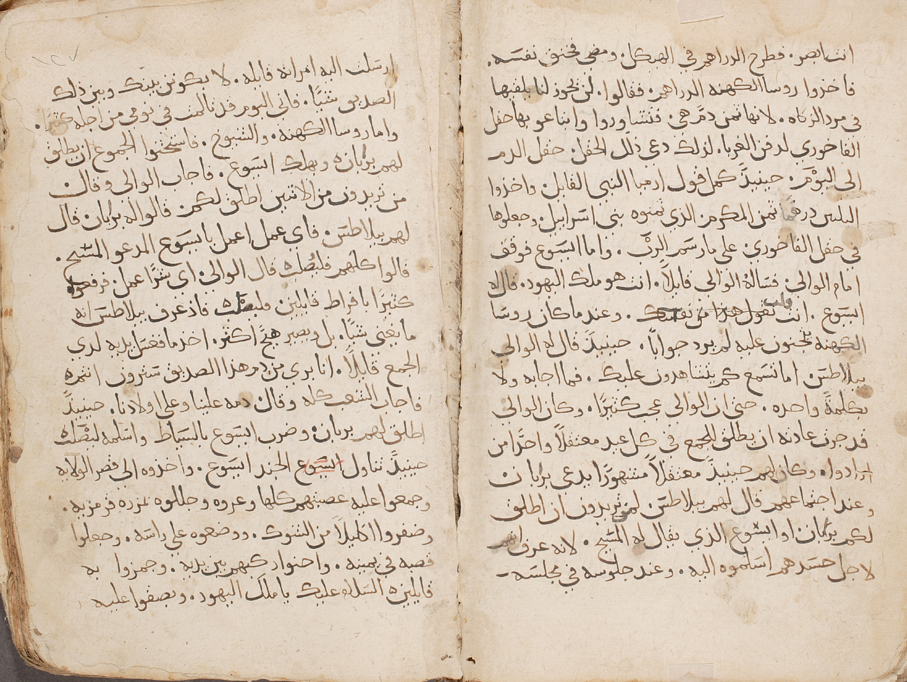 انت ابصر . فطرح الدراهم في الهيكل . ومضى فخنق نفسه .
فاخذوا روسا الكهنه الدراهم . فقالوا . لن يجوز لنا نلقيها
في مرد الزكاه . لانها ثمن دم هي . فتشاوروا وابتاعو بها حقل
الفاخوري لدفن الغربا . لذلك دعي ذلك الحقل . حقل الدم
الى اليوم . حينيذ كمل قول ارميا النبي القايل . واخذوا
الثلثين درهما ثمن المكرم . الذي ثمنوه بني اسراييل . وجعلوها
في حقل الفاخوري على ما رسم الرب . واما ايسوع فوقف
امام الوالي . فساله الوالي قايلا . انت هو ملك اليهود . قال له
ايسوع . انت قلت تقول هذا من نفسك . وعندما كان روسا
الكهنه يمحنون عليه لم يرد جوابا . حينيذ قال له الوالي
بيلاطس . اما تسمع كم يتشاهدون عليك . فما اجابه ولا
بكلمة واحده . حتى ان الوالي عجب كثيرا . وكان الوالي
قد جرت عادته ان يطلق للجمع في كل عيد معتقلا واحدا من
ارادوا . وكان لهم حينيذ معتقلا مشهورا يدعى بربان
وعند اجتماعهم قال لهم بيلاطس لمن تريدون ان اطلق
لكم بربان او ايسوع الذي يقال له المسيح . لانه عرف انهم
لاجل حسدهم اسلموه اليه . وعند جلوسه في مجلسه
ارسلت اليه امراته قايله . لا يكونن بينك وبين ذلك
الصديق شيئا . فاني اليوم قد تالمت في نومي من اجله كثيرا .
واما روسا الكهنه . والشيوخ . فاستحثوا الجموع ان يطلق
لهم بربان ويهلك ايسوع . فاجاب الوالي وقال
من تريدون من الاثنين اطلق لكم . قالوا له بربان . قال
لهم بيلاطس . فاي عمل اعمل بايسوع المدعو المسيح .
قالوا كلهم فليصلب قال الوالي . اي شرا عمل . فرفعوه
كثيرا بافراط قايلين فليصلب . فاذ عرف بيلاطس انه
ما يغني شيئا . بل ويصير هيج اكثر . اخذ ما فغسل يديه لدى
الجمع قايلا . انا بري من دم هذا الصديق ستروا انتم .
فاجاب الشعب كله وقال . دمه علينا وعلى اولادنا . حينيذ
اطلق لهم بربان . وضرب ايسوع بالسياط . واسلمه ليصلب
حينيذ تناول ايسوع الجند ايسوع . واخذوه الى قصر الولايه
وجمعوا عليه عصبتهم كلها وعروه وجللوه بزره قرمزيه .
وضفروا اكليلا من الشوك . ووضعوه على راسه . وجعلوا
قصبه في يمينه . واحنوا ركبهم بين يديه . وهمزوا به
قايلين . السلام عليك يا ملك اليهود . وبصقوا عليه